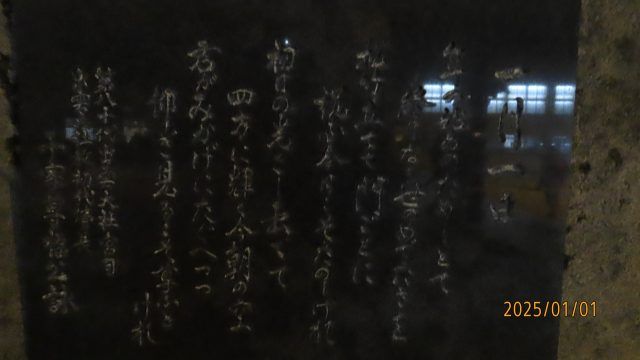 一月一日
年の始めのためしとて
終りなき世のめでたさを
松竹たてて門ごとに
祝ふ今日こそたのしけれ
初日の光さし出でて
四方に輝く今朝の空
君がみかげにたぐへつつ
仰ぎ見るこそ けれ
第八十代出雲大社宮司
千家尊福公詠
2025/01/01